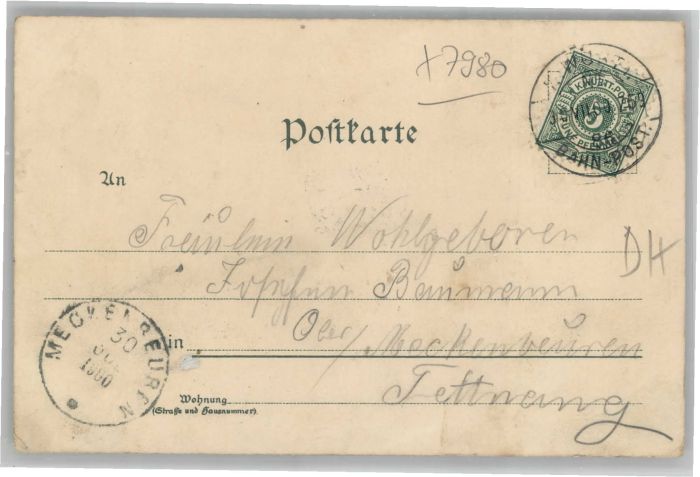 x7980
K.WÜRTT.POST
5
FÜNF PFENNIG
BAHN-POST
Postkarte
An
Fräulein Wohlgeboren
Baumann
DH
Ober/Meckenbeuren
in
Tettnang
MECKENBEUREN
30
Wohnung
(Straße und Hausnummer)